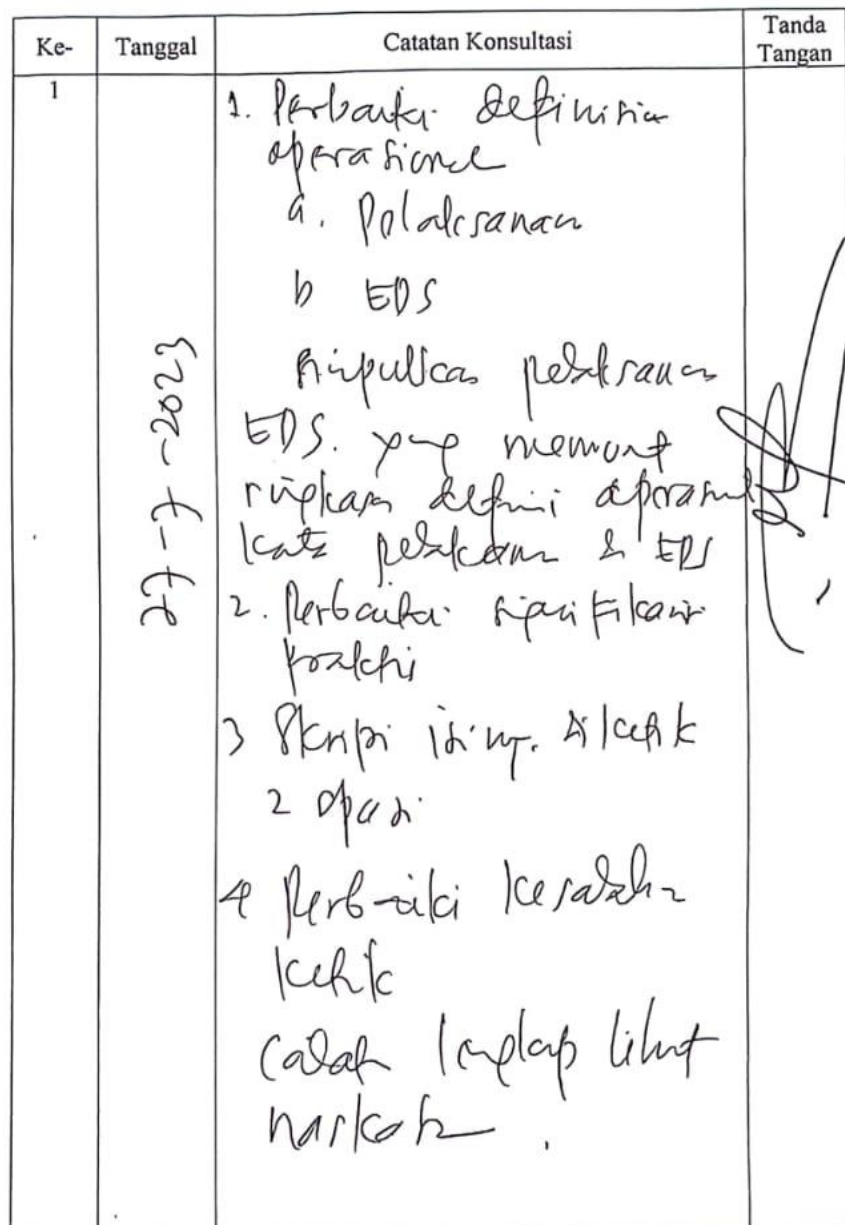 Ke- Tanggal Catatan Konsultasi Tanda Tangan
1
27-7-2023
1. Perbaiki definisi
operasional
a. Pelaksanaan
b EDS
simpulkan pelaksanaan
EDS. yang memuat
ringkasan definisi operasional
kata pelaksanaan & EDS
2. Perbaiki signifikansi
praktis
3 Skripsi diketik
2 spasi
4 Perbaiki kesalahan
ketik
Catatan lengkap lihat
naskah.